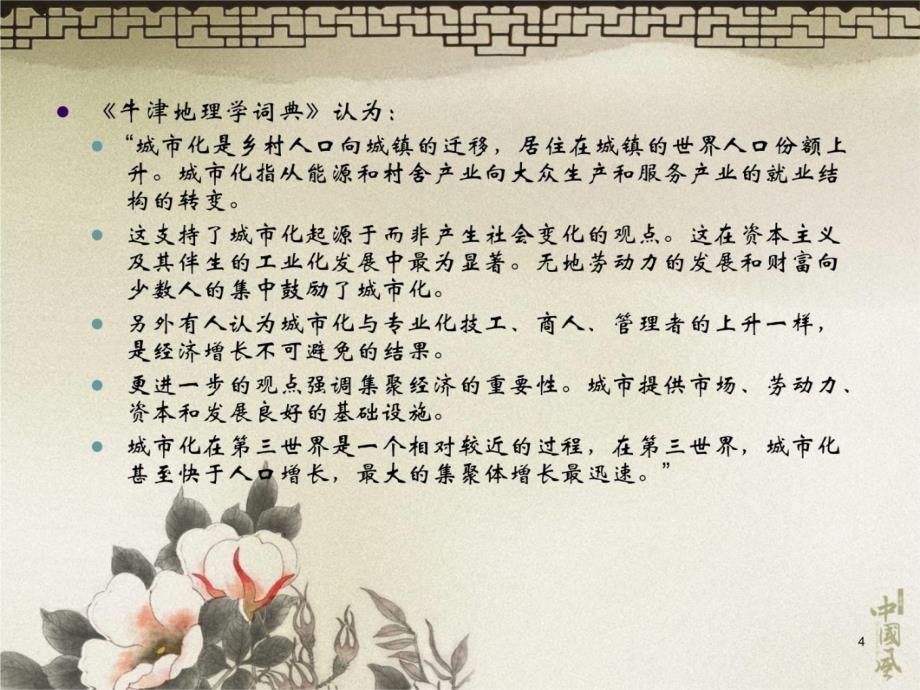 《牛津地理学词典》认为：
“城市化是乡村人口向城镇的迁移，居住在城镇的世界人口份额上
升。城市化指从能源和村舍产业向大众生产和服务产业的就业结
构的转变。
这支持了城市化起源于而非产生社会变化的观点。这在资本主义
及其伴生的工业化发展中最为显著。无地劳动力的发展和财富向
少数人的集中鼓励了城市化。
另外有人认为城市化与专业化技工、商人、管理者的上升一样，
是经济增长不可避免的结果。
更进一步的观点强调集聚经济的重要性。城市提供市场、劳动力、
资本和发展良好的基础设施。
城市化在第三世界是一个相对较近的过程，在第三世界，城市化
甚至快于人口增长，最大的集聚体增长最迅速。”
4
中國风